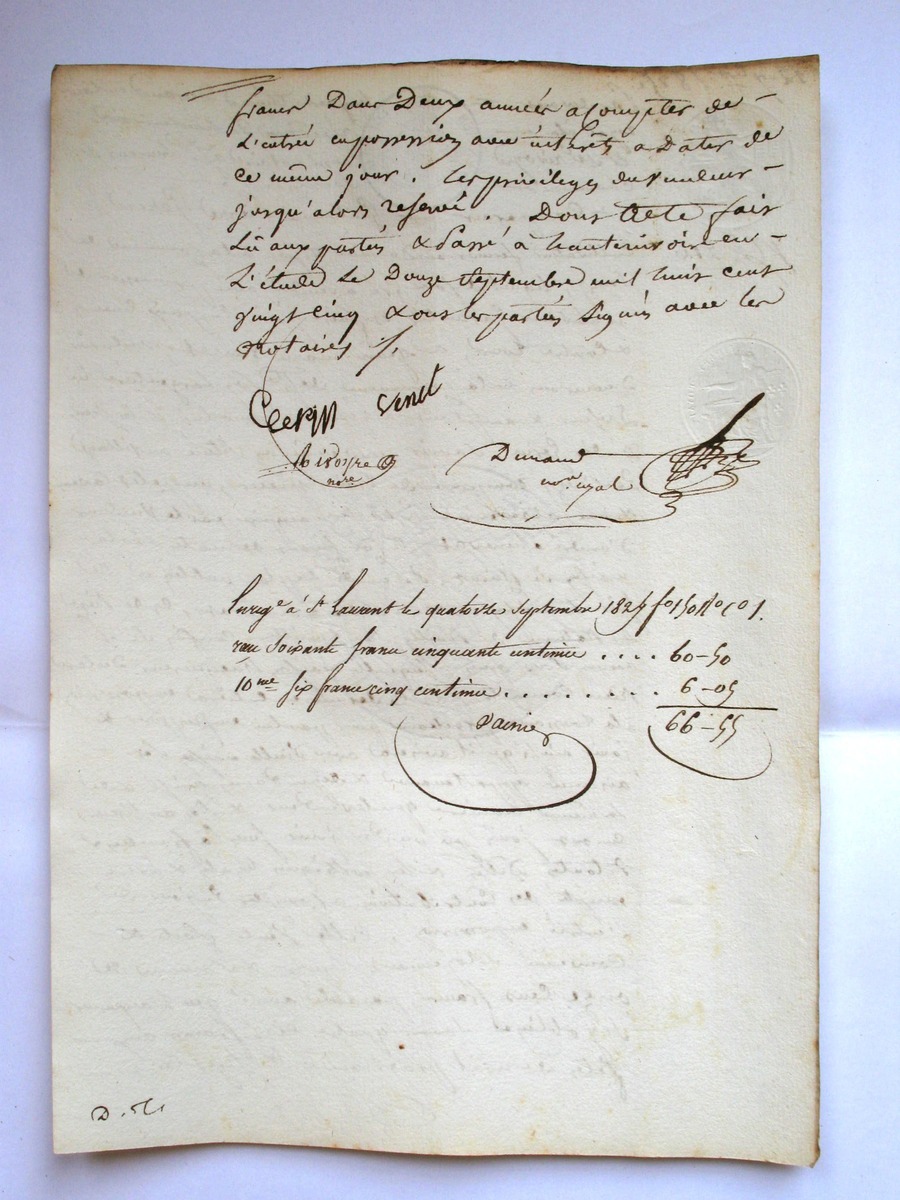 francs Dans Deux années a Compter de
L'entrée en possession avec intérêts a Dater de
Ce même jour. Les privileges du Vendeur
jusqu'alors reservé. Dont Acte fait
Lu aux parties & Passé à hauterivoire en
L'étude Le Douze Septembre mil huit cent
vingt cinq & ont les parties Signés avec les
Notaires
Venet
nore
Durand
nore. royal
Enrege. à St Laurent le quatorze Septembre 1825 fo 150 Ro C 1.
reçu Soixante francs cinquante centimes .... 60-50
10me six francs cinq centimes ........ 6-05
66-55